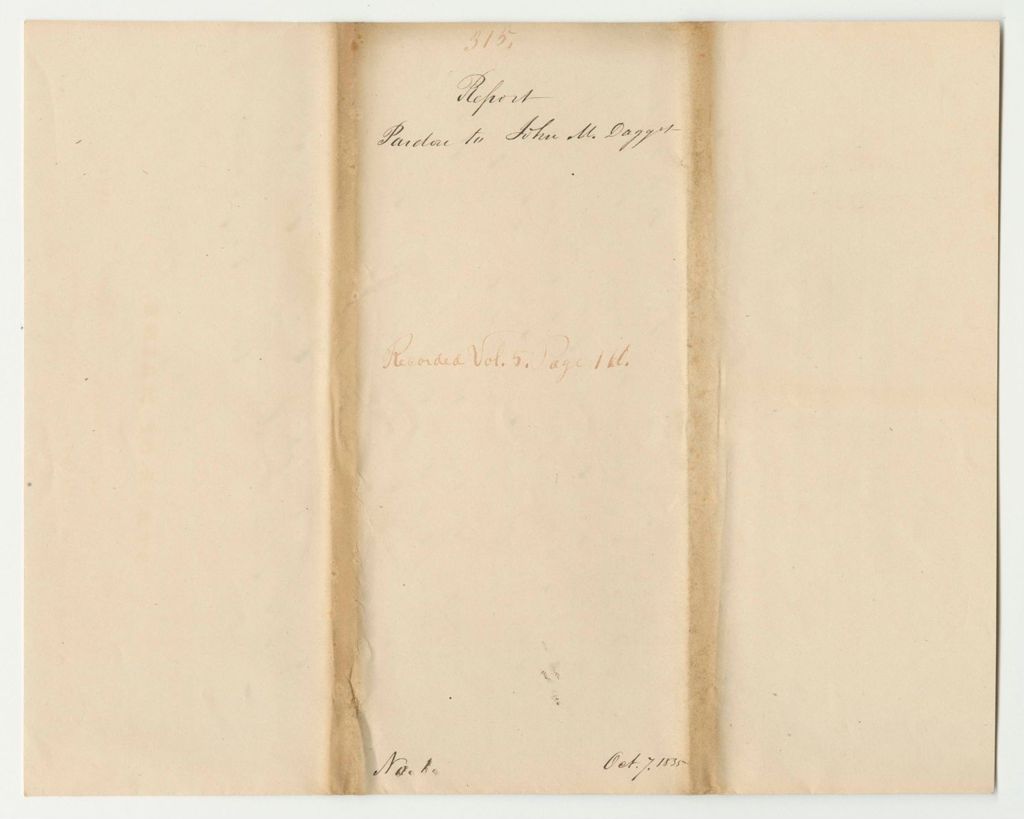 315.
Report
Pardon to John M. Dagget
Recorded Vol. 5. Page
Oct. 7. 1835